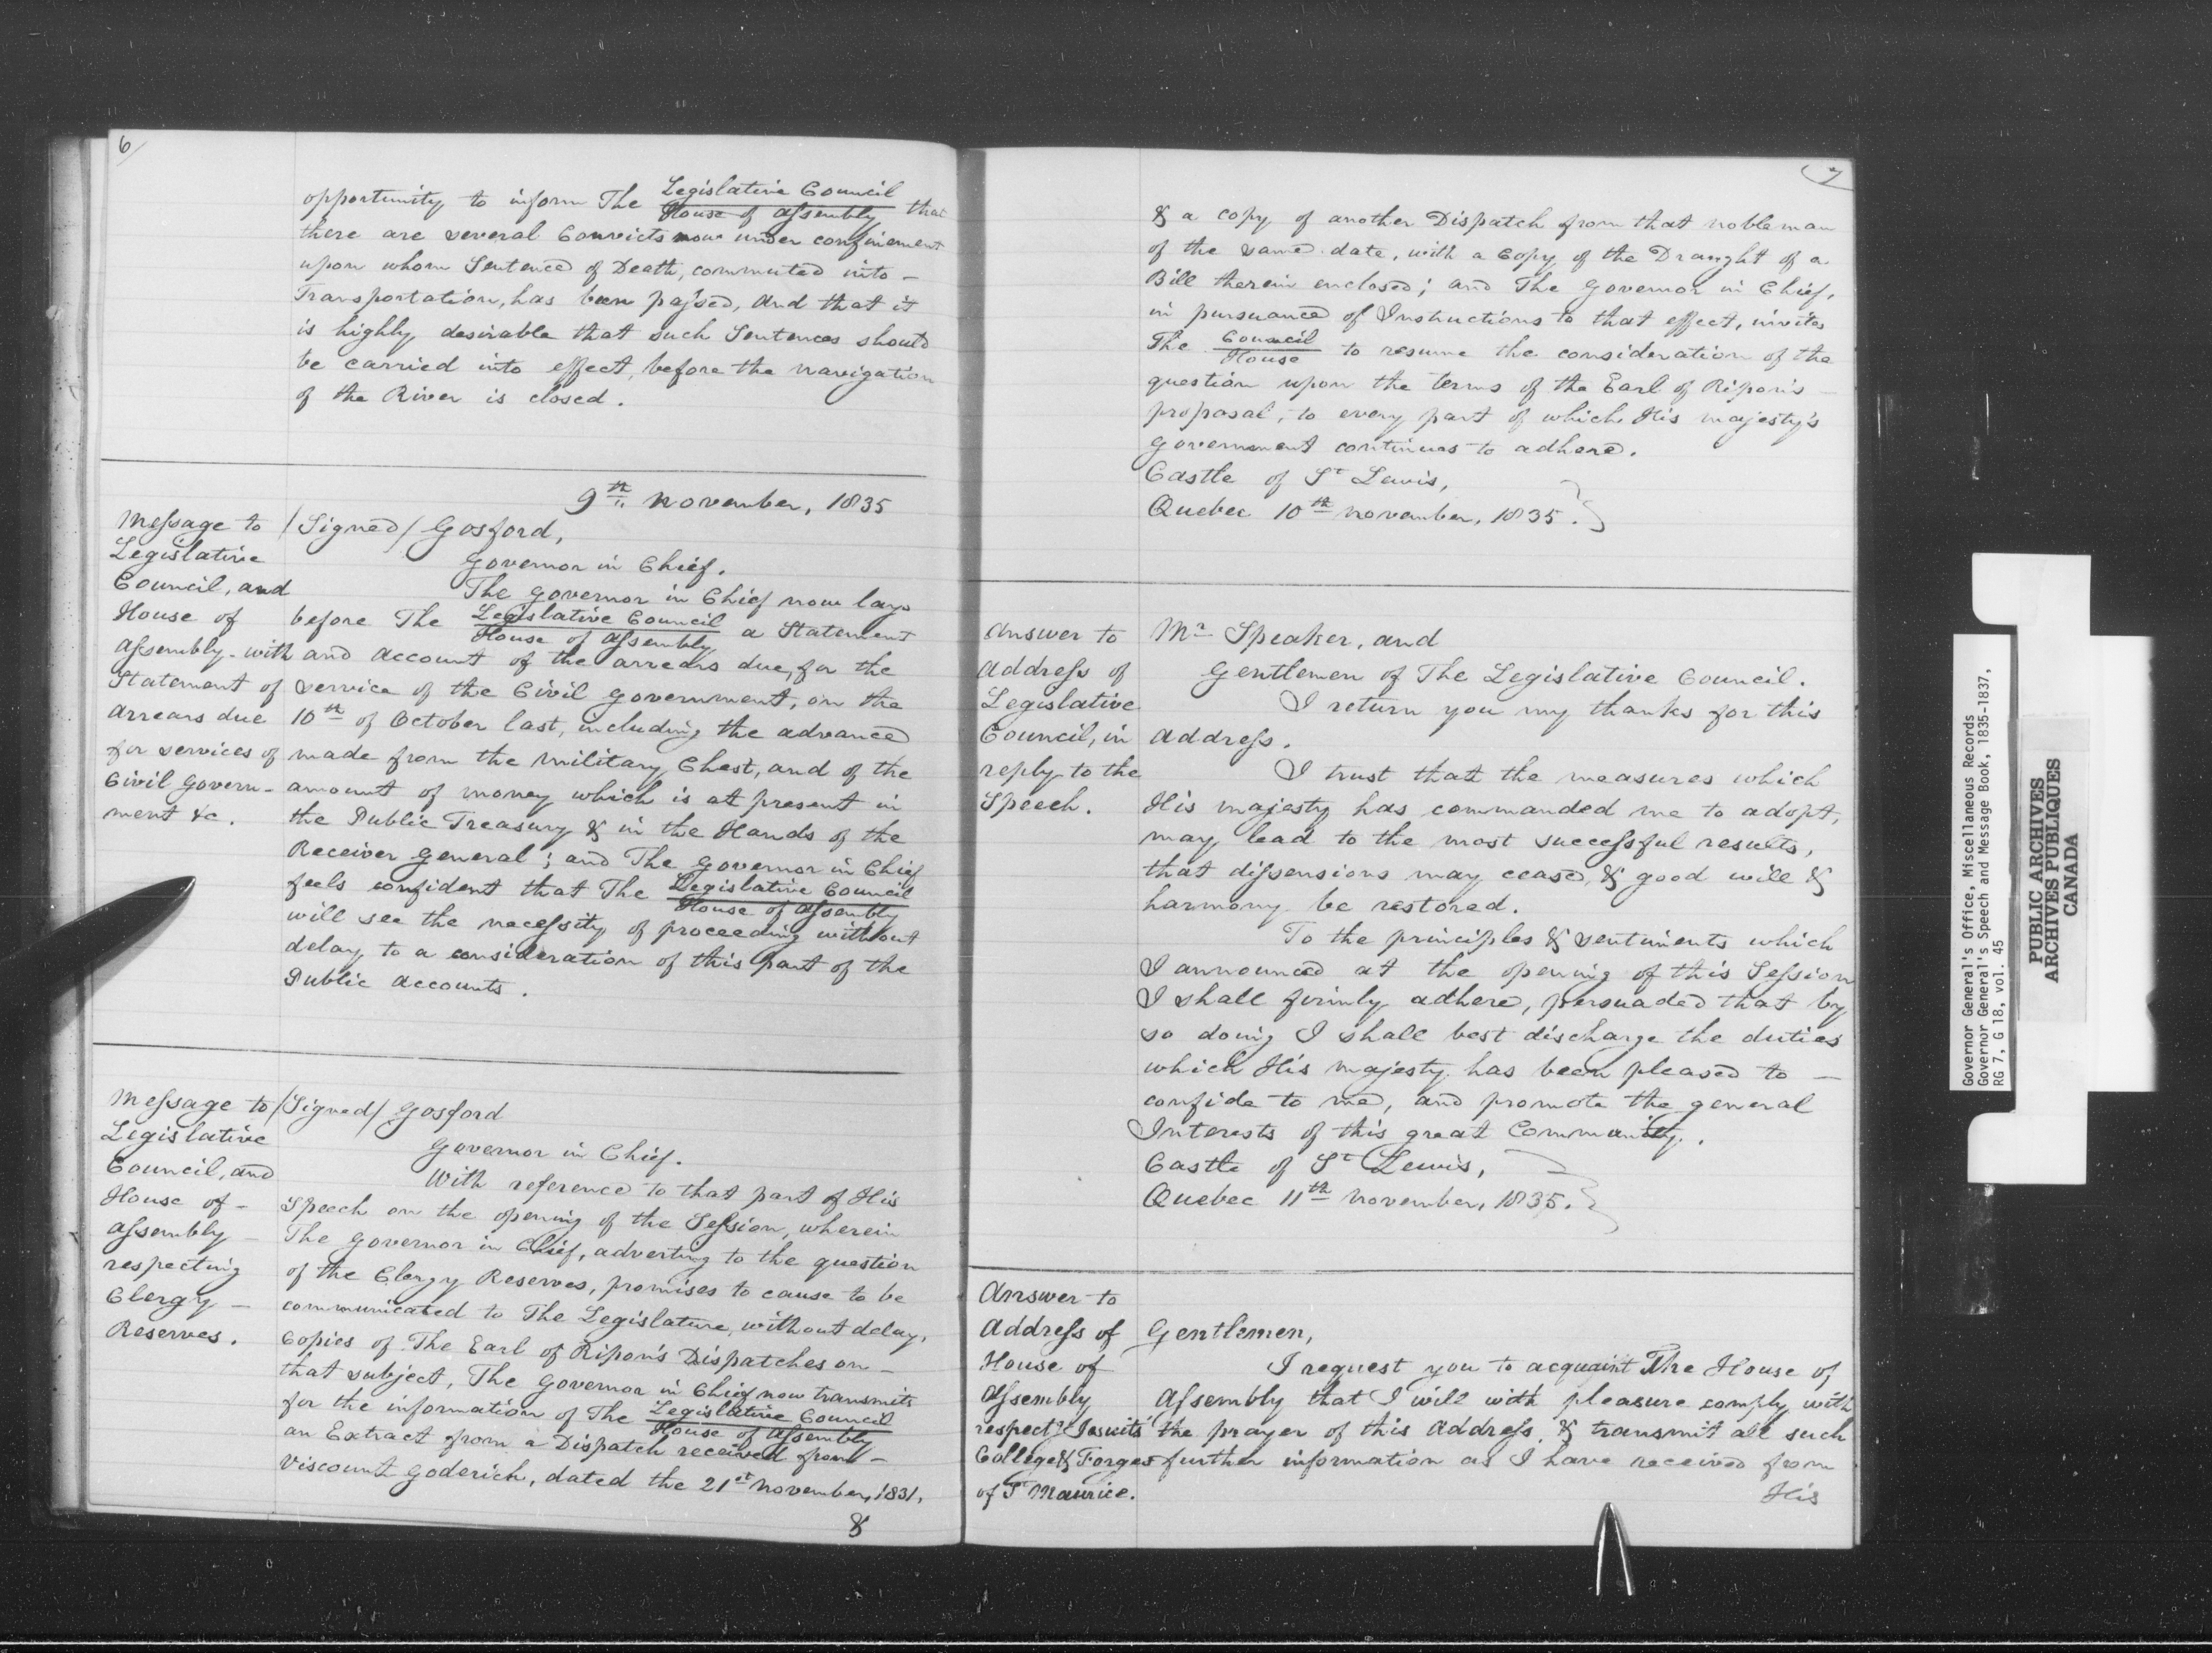 6
opportunity to inform The Legislative Council
House of Assembly that
there are several Convicts now under confinement
upon whom Sentence of Death, commuted into -
Transportation, has been passed, and that it
is highly desirable that such Sentences should
be carried into effect, before the navigation
of the River is closed.
9th November, 1835
Message to
Legislative
Council, and
House of
Assembly - with
Statement of
Arrears due
for services of
Civil Govern-
ment &c.
/Signed/ Gosford,
Governor in Chief.
The Governor in Chief now lays
before The Legislative Council
House of Assembly a Statement
and account of the arrears due, for the
service of the Civil Government, on the
10th of October last, including the advance
made from the Military Chest, and of the
amount of money which is at present in
the Public Treasury & in the Hands of the
Receiver General; and The Governor in Chief
feels confident that The Legislative Council
House of Assembly
will see the necessity of proceeding without
delay to a consideration of this part of the
Public accounts.
Message to
Legislative
Council, and
House of -
Assembly -
respecting
Clergy -
Reserves.
/Signed/ Gosford
Governor in Chief.
With reference to that part of His
Speech on the opening of the Session, wherein
The Governor in Chief, adverting to the question
of the Clergy Reserves, promises to cause to be
communicated to The Legislature, without delay,
Copies of The Earl of Ripon's Dispatches on -
that subject, The Governor in Chief now transmits
for the information of The Legislative Council
House of Assembly
an Extract from a Dispatch received from -
Viscount Goderich, dated the 21st November, 1831,
&
7
& a copy of another Dispatch from that nobleman
of the same date, with a Copy of the Draught of a
Bill therein enclosed; and The Governor in Chief,
in pursuance of Instructions to that effect, invites
The Council
House to resume the consideration of the
question upon the terms of the Earl of Ripon's -
proposal, to every part of which His Majesty's
Government continues to adhere.
Castle of St Lewis,
Quebec 10th November, 1835.
Answer to
Address of
Legislative
Council, in
reply to the
Speech.
Mr Speaker, and
Gentlemen of The Legislative Council.
I return you my thanks for this
Address.
I trust that the measures which
His Majesty has commanded me to adopt,
may lead to the most successful results,
that dissensions may cease, & good will &
harmony be restored.
To the principles & sentiments which
I announced at the opening of this Session
I shall firmly adhere, persuaded that by
so doing I shall best discharge the duties
which His Majesty has been pleased to -
confide to me, and promote the general
Interests of this great Community.
Castle of St Lewis,
Quebec 11th November, 1835.
Answer to
Address of
House of
Assembly
respectg Jesuits'
College & Forges
of St Maurice.
Gentlemen,
I request you to acquaint The House of
Assembly that I will with pleasure comply with
the prayer of this Address, & transmit all such
further information as I have received from
His
Governor General's Office, Miscellaneous Records
Governor General's Speech and Message Book, 1835-1837,
RG 7, G 18, vol. 45
PUBLIC ARCHIVES
ARCHIVES PUBLIQUES
CANADA